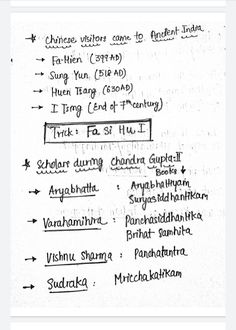 * Chinese visitors came to Ancient India.
→ Fa-Hien (399 AD)
→ Sung Yun (518 AD)
→ Huen Tsang (630 AD)
→ I Tsing (End of 7th century)
Trick: Fa Si Hu I
* Scholars during Chandra Gupta-II
Books ↓
→ Aryabhatta : Aryabhattiyam
Suryasiddhantikam
→ Varahamihira : Panchasiddhantika
Brihat Samhita
→ Vishnu Sharma : Panchatantra
→ Sudraka : Mricchakatikam